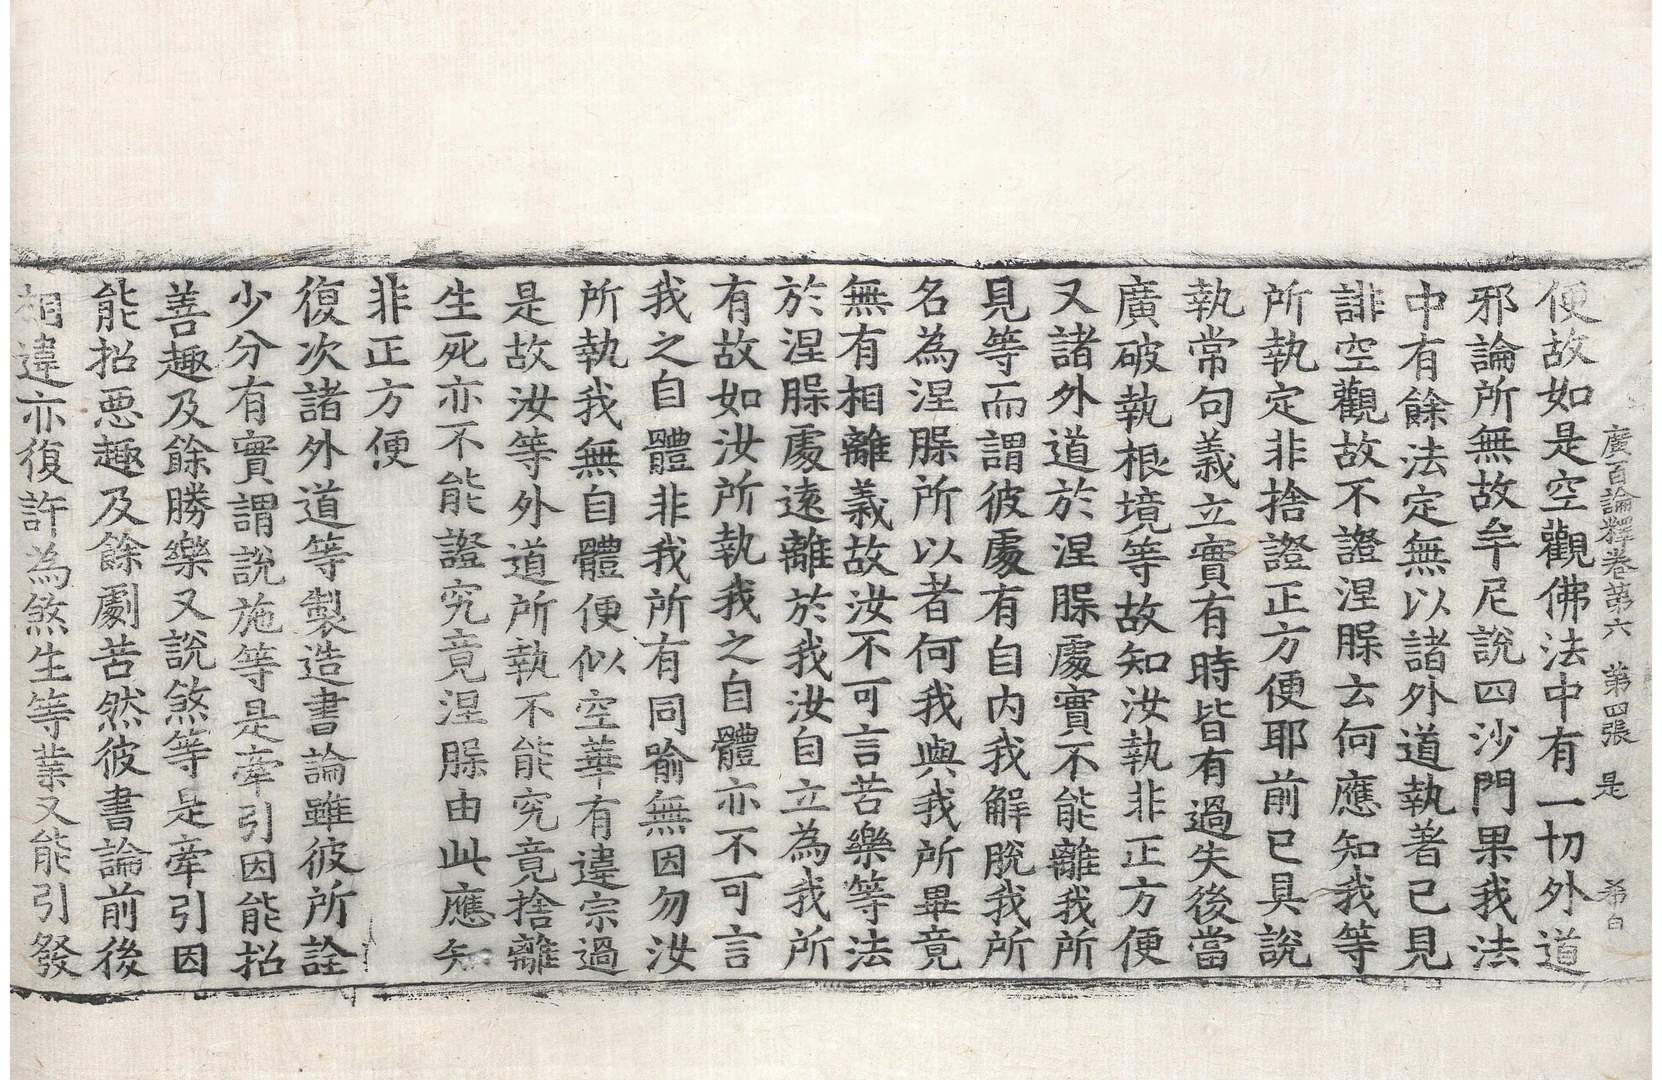 廣百論釋卷第六　第四張　是　希白
便故如是空觀佛法中有一切外道
邪論所無故牟尼說四沙門果我法
中有餘法定無以諸外道執著已見
誹空觀故不證涅槃云何應知我等
所執定非捨證正方便耶前已具說
執常句義立實有時皆有過失後當
廣破執根境等故知汝執非正方便
又諸外道於涅槃處實不能離我所
見等而謂彼處有自內我解脫我所
名為涅槃所以者何我與我所畢竟
無有相離義故汝不可言苦樂等法
於涅槃處遠離於我汝自立為我所
有故如汝所執我之自體亦不可言
我之自體非我我所有同喻無因勿汝
所執我無自體便似空華有違宗過
是故汝等外道所執不能究竟捨離
生死亦不能證究竟涅槃由此應知
非正方便
復次諸外道等製造書論雖彼所詮
少分有實謂說施等是牽引因能招
善趣及餘勝樂又說煞等是牽引因
能招惡趣及餘劇苦然彼書論前後
相違亦復許為煞生等業又能引發